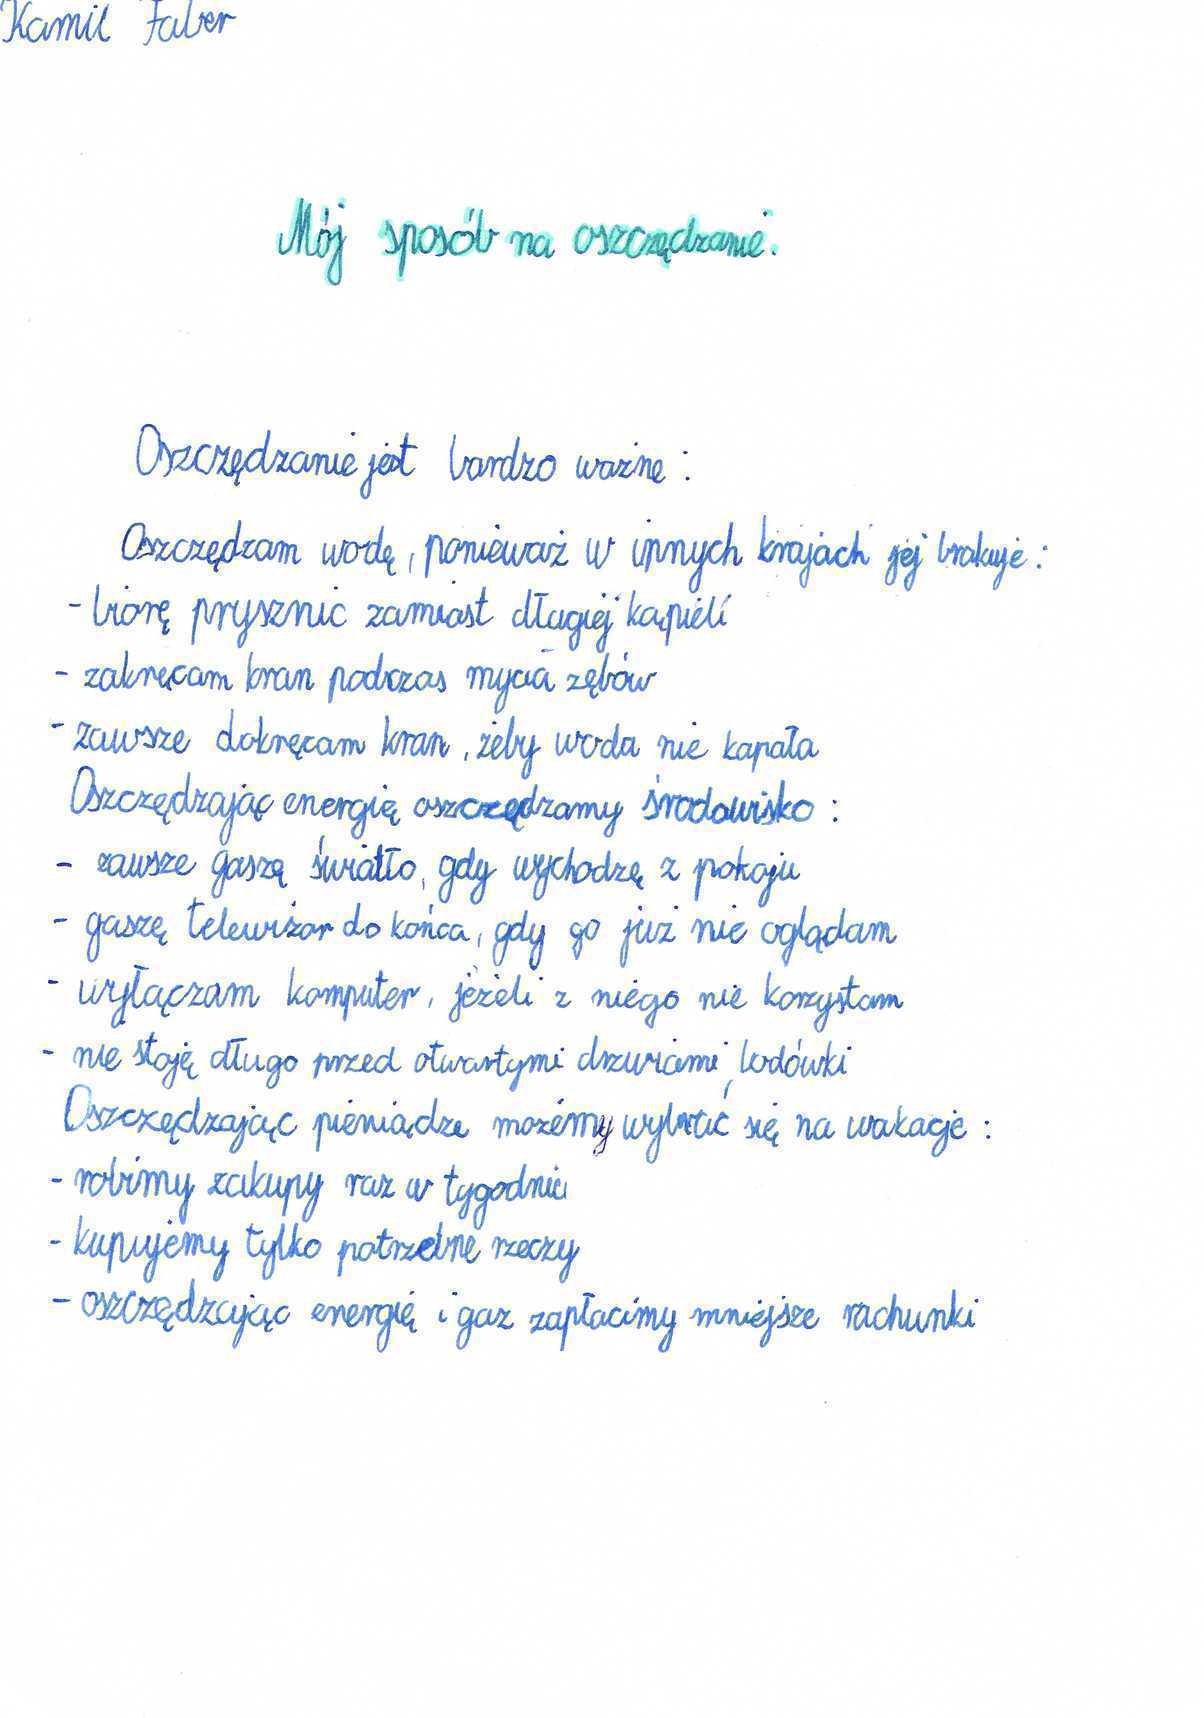 Kamil Faber
Mój sposób na oszczędzanie.
Oszczędzanie jest bardzo ważne :
Oszczędzam wodę, ponieważ w innych krajach jej brakuje :
- biorę prysznic zamiast długiej kąpieli
- zakręcam kran podczas mycia zębów
- zawsze dokręcam kran, żeby woda nie kapała
Oszczędzając energię oszczędzamy środowisko :
- zawsze gaszę światło, gdy wychodzę z pokoju
- gaszę telewizor do końca, gdy go już nie oglądam
- wyłączam komputer, jeżeli z niego nie korzystam
- nie stoję długo przed otwartymi drzwiami lodówki
Oszczędzając pieniądze możemy wybrać się na wakacje :
- robimy zakupy raz w tygodniu
- kupujemy tylko potrzebne rzeczy
- oszczędzając energię i gaz zapłacimy mniejsze rachunki